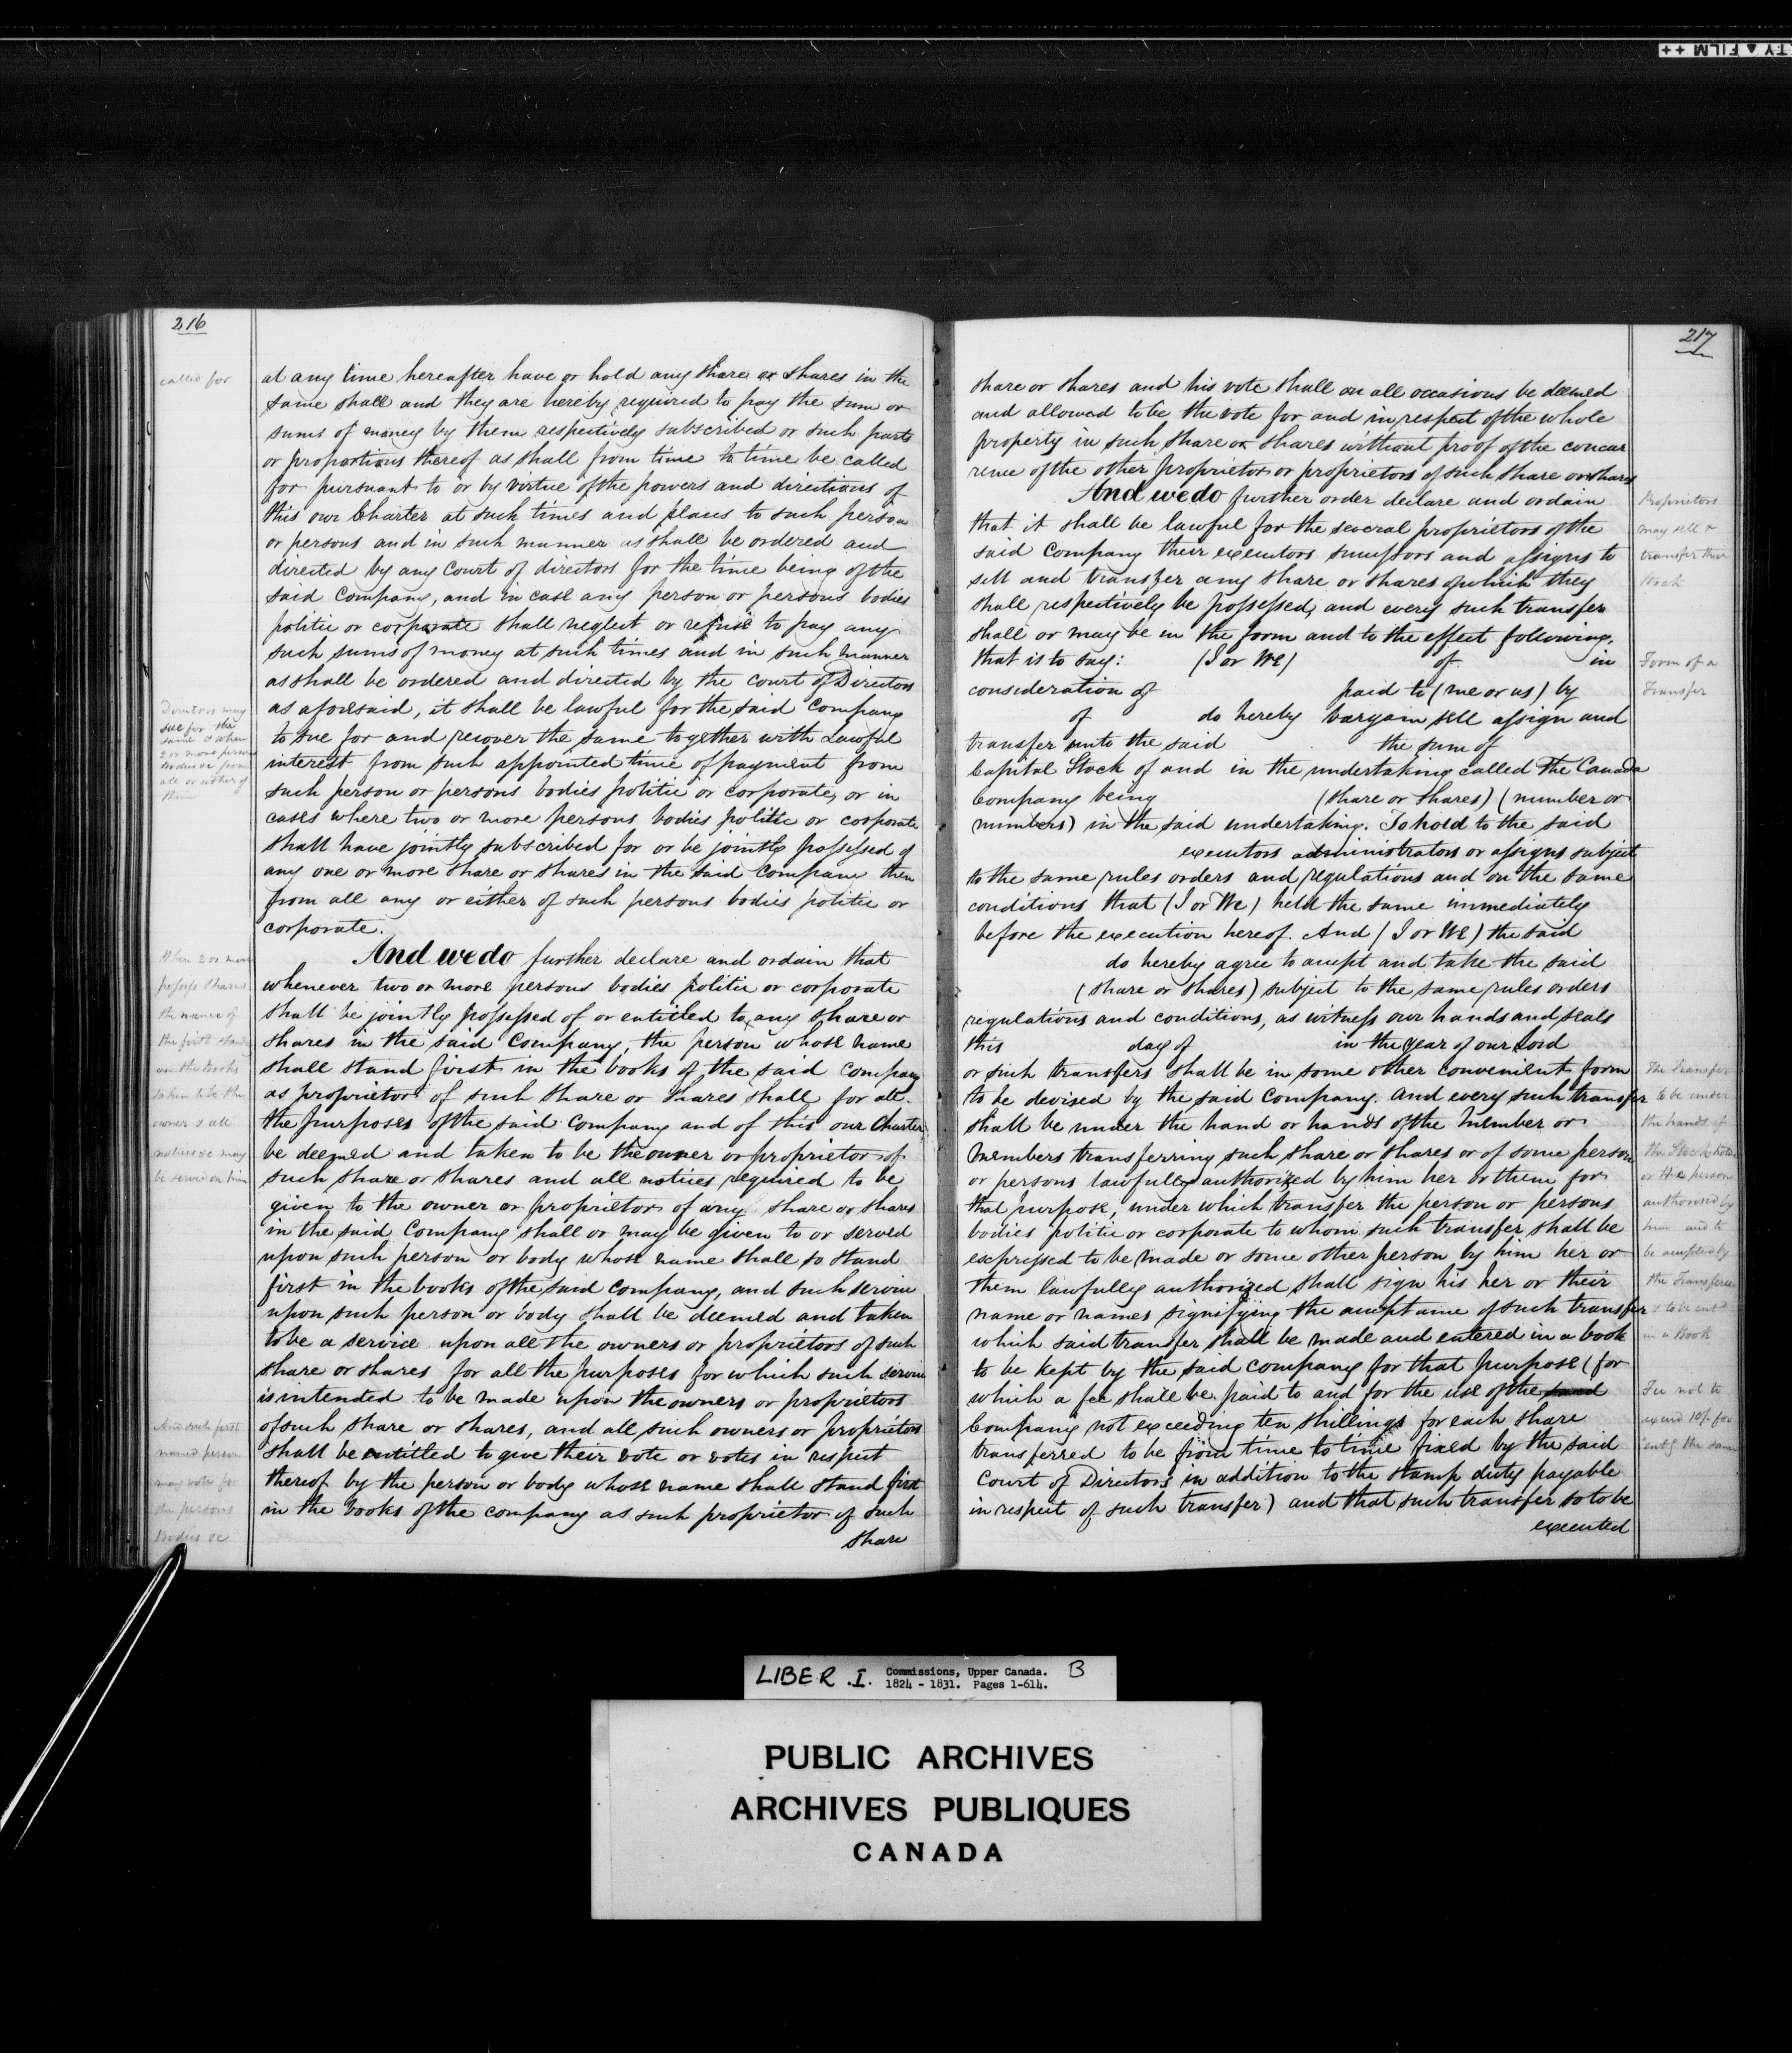 216
called for
at any time hereafter have or hold any share or shares in the
same shall and they are hereby required to pay the sum or
sums of money by them respectively subscribed or such parts
or proportions thereof as shall from time to time be called
for pursuant to or by virtue of the powers and directions of
this our Charter at such times and places to such person
or persons and in such manner as shall be ordered and
directed by any Court of directors for the time being of the
said Company, and in case any person or persons bodies
politic or corporate shall neglect or refuse to pay any
such sums of money at such times and in such manner
as shall be ordered and directed by the court of Directors
as aforesaid, it shall be lawful for the said Company
to sue for and recover the same together with Lawful
interest from such appointed time of payment from
such person or persons bodies politic or corporate, or in
cases where two or more persons bodies politic or corporate
shall have jointly subscribed for or be jointly possessed of
any one or more share or shares in the said Company then
from all any or either of such persons bodies politic or
corporate.
Directors may
sue for the
same & when
2 or more persons
Bodies &c from
all or either of
them
And we do further declare and ordain that
whenever two or more persons bodies politic or corporate
shall be jointly possessed of or entitled to any share or
shares in the said Company, the person whose name
shall stand first in the books of the said Company
as proprietor of such share or shares shall for all
the purposes of the said Company and of this our Charter
be deemed and taken to be the owner or proprietor of
such share or shares and all notices required to be
given to the owner or proprietor of any share or shares
in the said Company shall or may be given to or served
upon such person or body whose name shall so stand
first in the books of the said Company, and such service
upon such person or body shall be deemed and taken
to be a service upon all the owners or proprietors of such
share or shares for all the purposes for which such service
is intended to be made upon the owners or proprietors
of such share or shares, and all such owners or proprietors
shall be entitled to give their vote or votes in respect
thereof by the person or body whose name shall stand first
in the books of the company as such proprietor of such
share
When 2 or more
possess shares
the name of
the first
on the Books
taken to be the
owner & all
notices &c may
be served on him
And such first
named person
may vote for
the persons
Bodies &c
217
share or shares and his vote shall on all occasions be deemed
and allowed to be the vote for and in respect of the whole
property in such share or shares without proof of the concur
rence of the other proprietor or proprietors of such share or shares
And we do further order declare and ordain
that it shall be lawful for the several proprietors of the
said Company their executors successors and assigns to
sell and transfer any share or shares of which they
shall respectively be possessed, and every such transfer
shall or may be in the form and to the effect following,
that is to say: (I or We) of in
consideration of paid to (me or us) by
of do hereby bargain sell assign and
transfer unto the said the sum of
Capital Stock of and in the undertaking called The Canada
Company being (share or shares) (number or
numbers) in the said undertaking. To hold to the said
executors administrators or assigns subject
to the same rules orders and regulations and on the same
conditions that (I or We) held the same immediately
before the execution hereof. And (I or We) the said
do hereby agree to accept and take the said
(share or shares) subject to the same rules orders
regulations and conditions, as witness our hands and seals
this day of in the year of our Lord
or such transfers shall be in some other convenient form
to be devised by the said Company. And every such transfer
shall be under the hand or hands of the member or
members transferring such share or shares or of some person
or persons lawfully authorized by him her or them for
that purpose, under which transfer the person or persons
bodies politic or corporate to whom such transfer shall be
expressed to be made or some other person by him her or
them lawfully authorized shall sign his her or their
name or names signifying the acceptance of such transfer
which said transfer shall be made and entered in a book
to be kept by the said company for that purpose (for
which a fee shall be paid to and for the use of the said
Company not exceeding ten shillings for each share
transferred to be from time to time fixed by the said
Court of Directors in addition to the stamp duty payable
in respect of such transfer) and that such transfer so to be
executed
Proprietors
may sell &
transfer their
Stock
Form of a
Transfer
The Transfer
to be under
the hands of
the Stockholder
or the person
authorised by
him and to
be accepted by
the Transferee
& to be ent'd
in a Book
Fee not to
exceed 10/- for
ent'g the same
TY ▲ FILM ++
LIBER .I. Commissions, Upper Canada. B
1824 - 1831. Pages 1-614.
PUBLIC ARCHIVES
ARCHIVES PUBLIQUES
CANADA